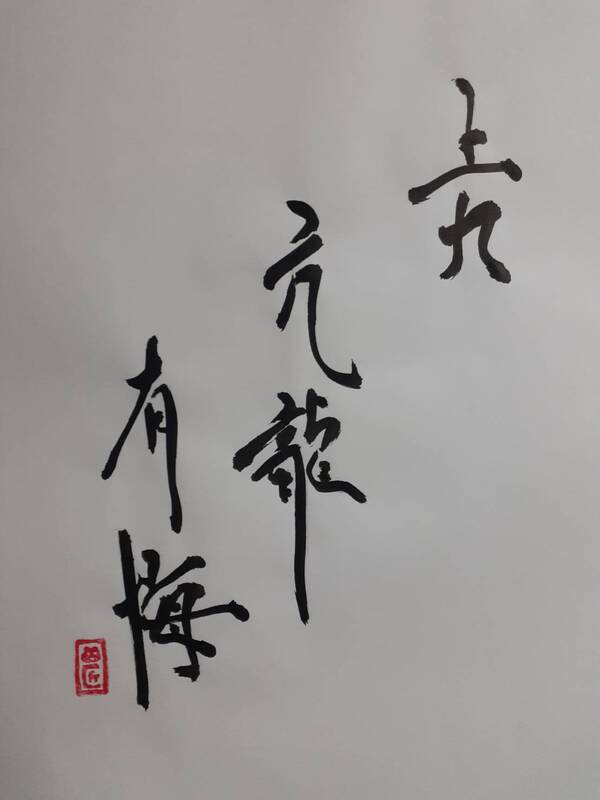 上九
亢龍
有悔